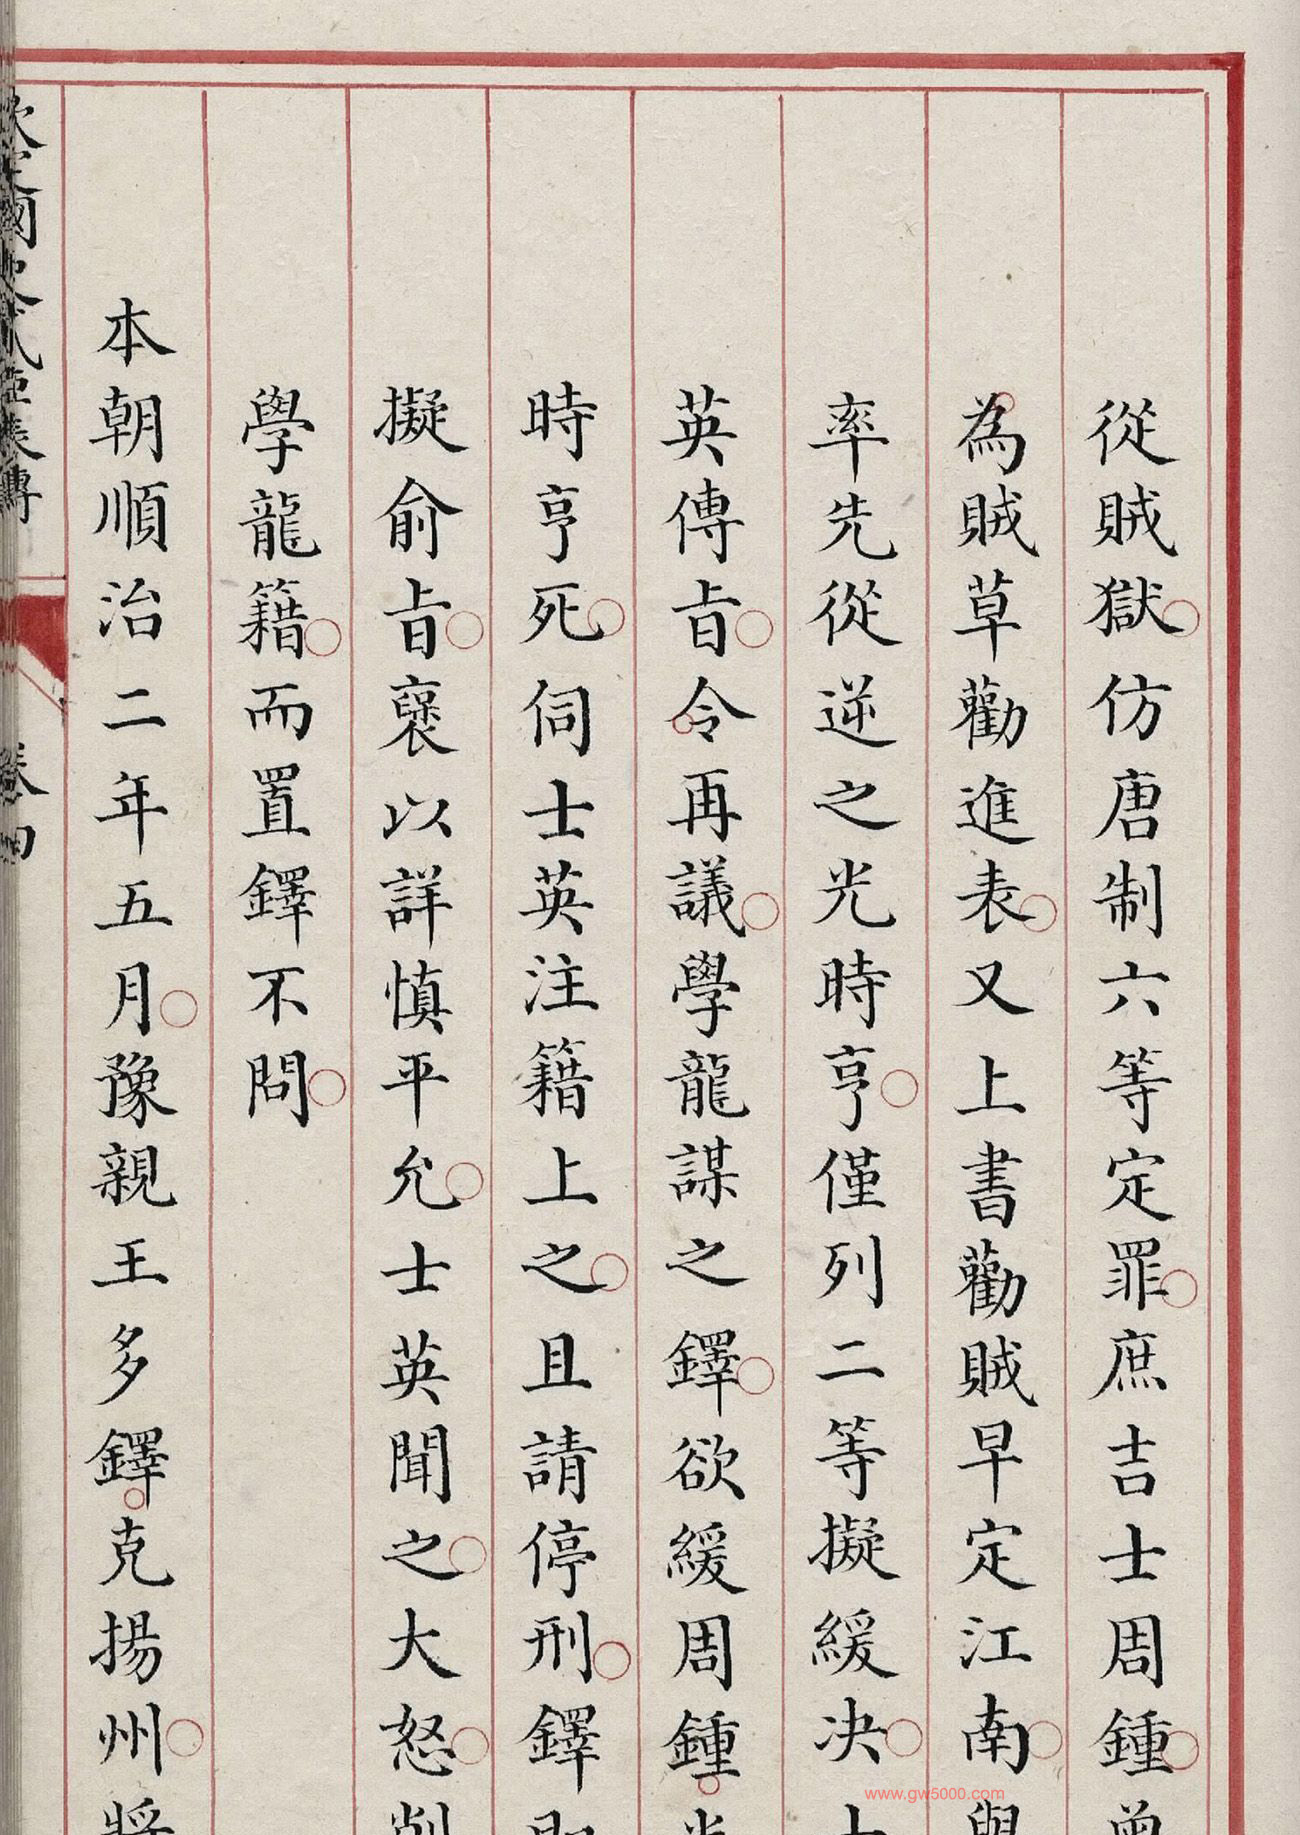 從賊獄仿唐制六等定罪庶吉士周鍾曾
為賊草勸進表又上書勸賊早定江南與
率先從逆之光時亨僅列二等擬緩决士
英傳㫖令再議學龍謀之鐸欲緩周鍾光
時亨死伺士英注籍上之且請停刑鐸即
擬俞㫖襃以詳慎平允士英聞之大怒削
學龍籍而置鐸不問
本朝順治二年五月豫親王多鐸克揚州將
欽定國史貳臣表傳
卷四
www.gw5000.com